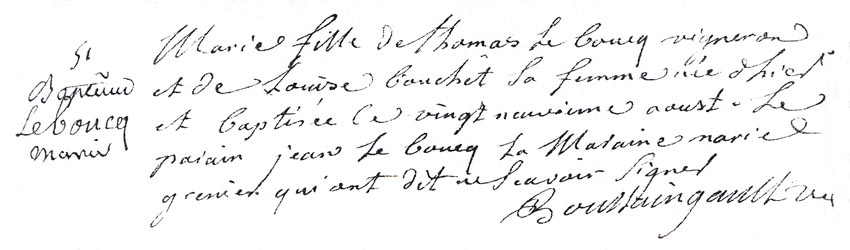 51
Baptême
Le boucq
Marie
Marie fille de thomas Le boucq vigneron
et de Louise bouchêt sa femme née d'hier
et baptisée Ce vingt neuvieme aoust. Le
parain jean Le boucq La Maraine marie
grenier qui ont dit ne scavoir signer
Boussaingault